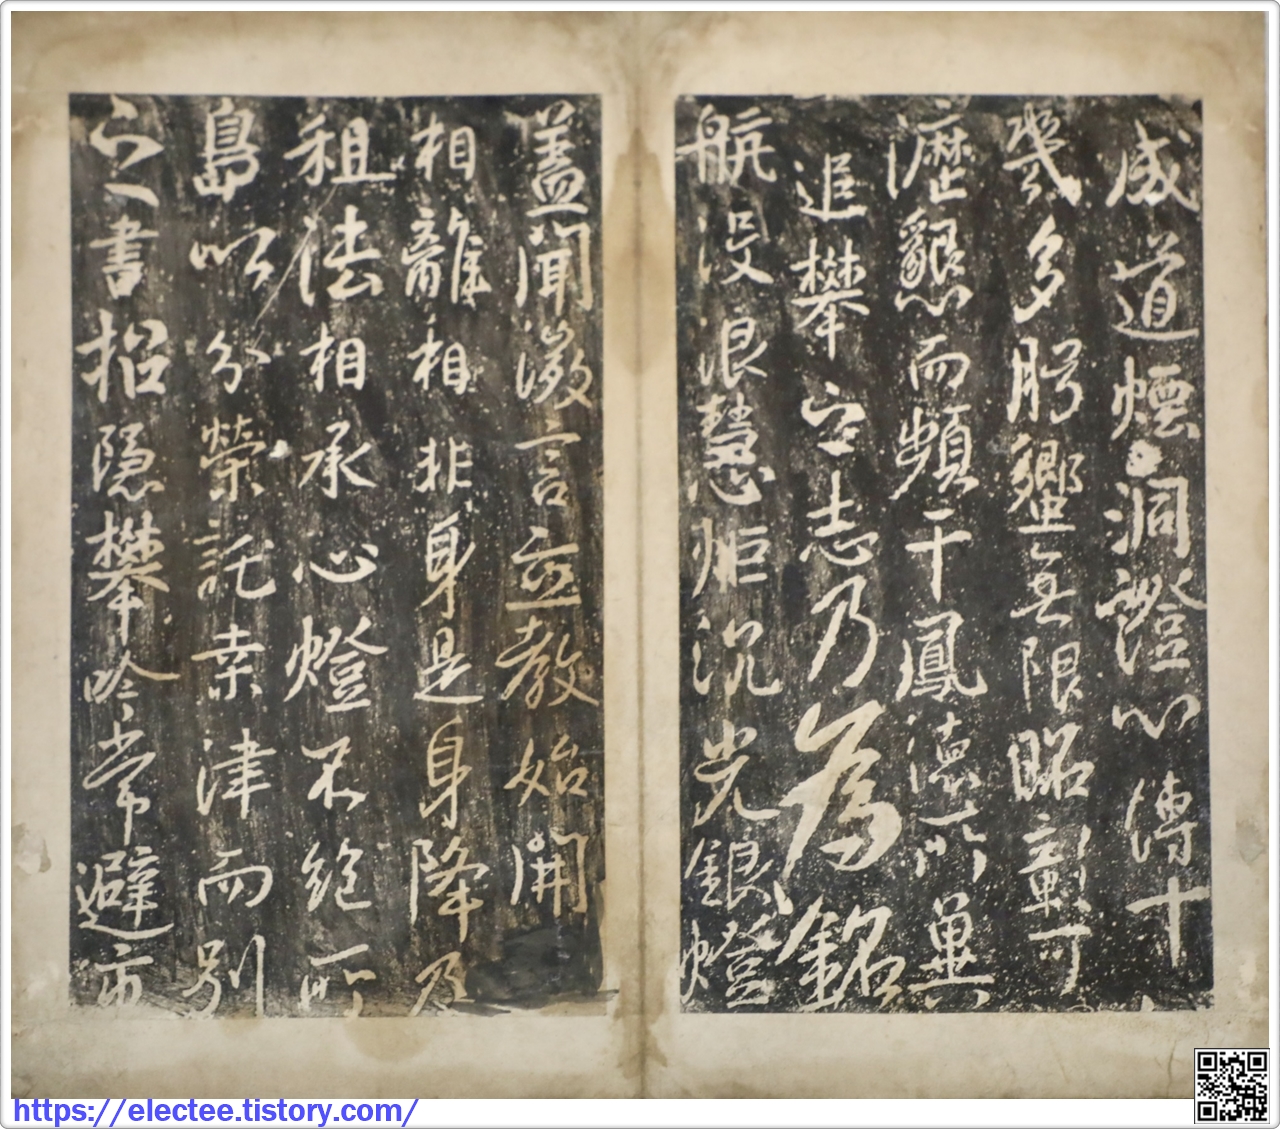 成道煙洞證心傳十
幾多肹蠁無限昭彰可
瀝懇而頻干鳳德所冀
追攀志乃為銘
航没浪慧炬沉光銀燈
蓋聞微言立教始開
相離相非身是身降及
祖法相承心燈不絶所
島以分榮託桒津而別
書招隱攀吟常避市
https://electee.tistory.com/